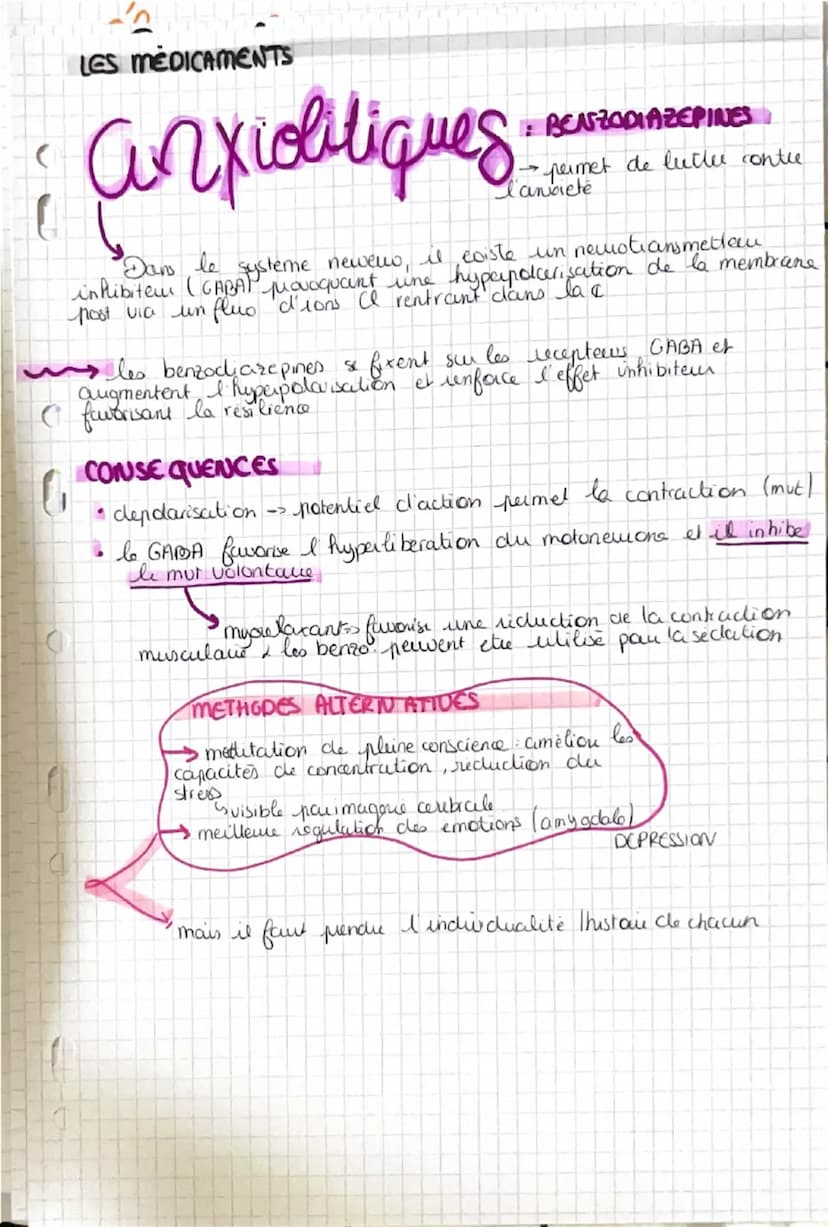 LES MÉDICAMENTS
anxiolitiques : BENZODIAZEPINES
→ permet de lutter contre
l'anxieté
Dans le systeme nerveux, il existe un neurotransmetteur
inhibiteur (GABA) provoquant une hyperpolarisation de la membrane
post via un flux d'ions Cl rentrant dans la
les benzodiazepines se fixent sur les recepteurs GABA et
augmentent l'hyperpolarisation et renforce l'effet inhibiteur
favorisant la resilience
CONSEQUENCES
• depolarisation -> potentiel d'action permet la contraction (mvt)
• le GABA favorise l'hyperliberation du motoneurone et il inhibe
le mvt volontaire
myorelaxant => favorise une réduction de la contraction
musculaire les benzo. peuvent etre utilisé pour la sédation
METHODES ALTERNATIVES
→ meditation de pleine conscience : améliore les
capacités de concentration, reduction du
stress
↳ visible par imagerie cerebrale
→ meilleure regulation des emotions (amygdale)
DEPRESSION
mais il faut prendre l'individualité l'histoire de chacun